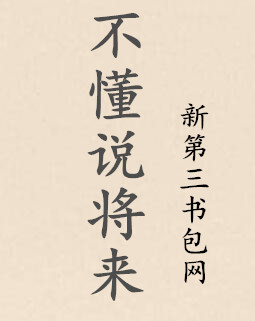 不懂说将来
新第三书包网